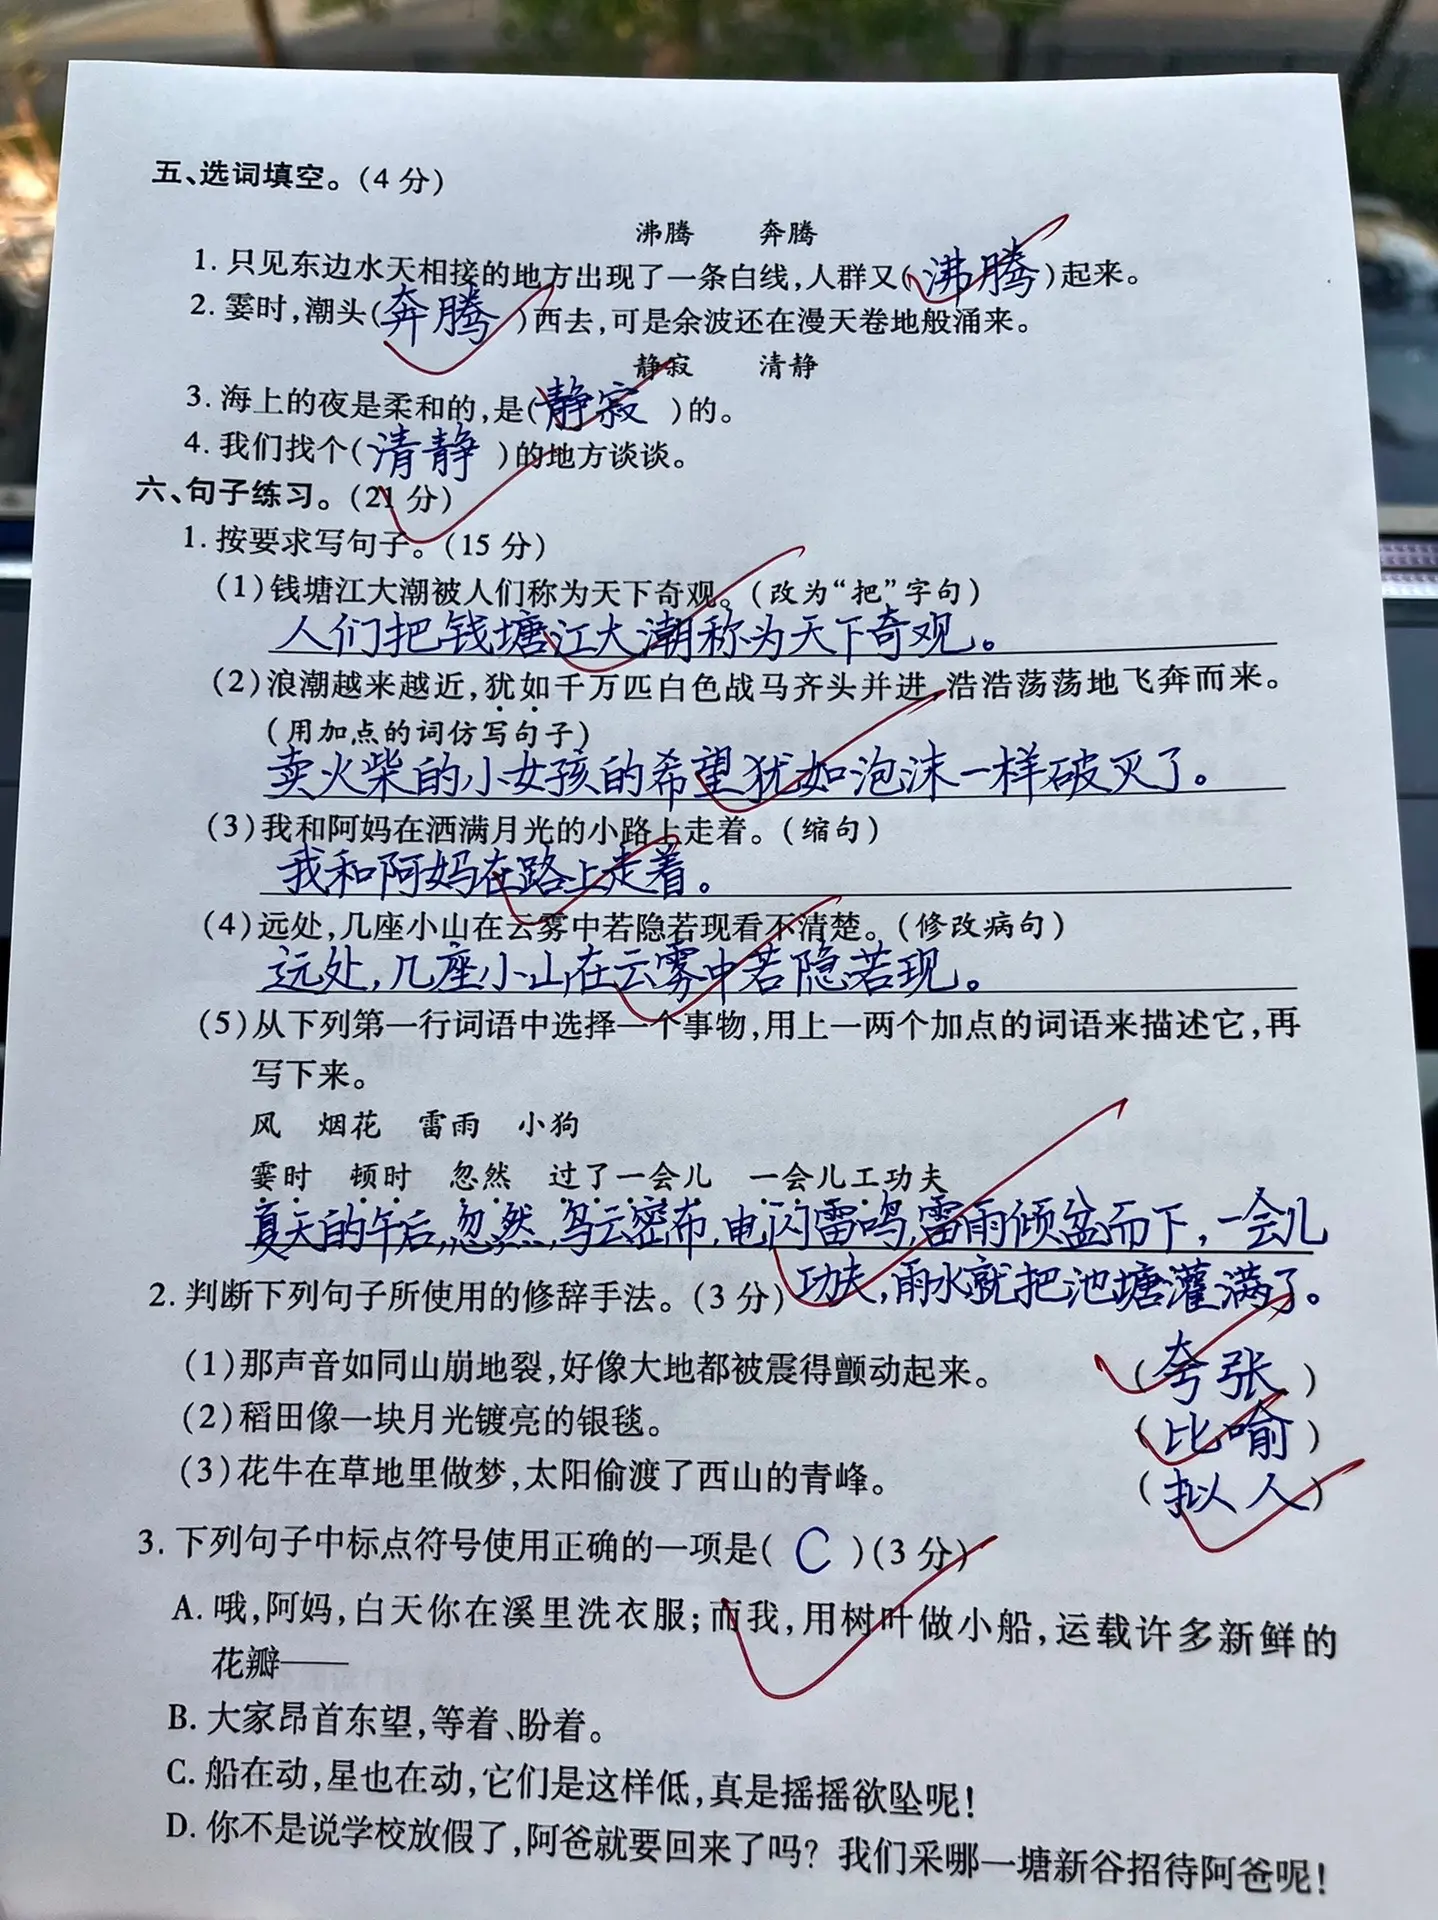 五、选词填空。(4 分)
沸腾 奔腾
1. 只见东边水天相接的地方出现了一条白线,人群又(沸腾)起来。
2. 霎时,潮头(奔腾)西去,可是余波还在漫天卷地般涌来。
静寂 清静
3. 海上的夜是柔和的,是(静寂)的。
4. 我们找个(清静)的地方谈谈。
六、句子练习。(21 分)
1. 按要求写句子。(15 分)
(1)钱塘江大潮被人们称为天下奇观。(改为“把”字句)
人们把钱塘江大潮称为天下奇观。
(2)浪潮越来越近,犹如千万匹白色战马齐头并进,浩浩荡荡地飞奔而来。
(用加点的词仿写句子)
卖火柴的小女孩的希望犹如泡沫一样破灭了。
(3)我和阿妈在洒满月光的小路上走着。(缩句)
我和阿妈在路上走着。
(4)远处,几座小山在云雾中若隐若现看不清楚。(修改病句)
远处,几座小山在云雾中若隐若现。
(5)从下列第一行词语中选择一个事物,用上一两个加点的词语来描述它,再
写下来。
风 烟花 雷雨 小狗
霎时 顿时 忽然 过了一会儿 一会儿工功夫
夏天的午后,忽然,乌云密布,电闪雷鸣,雷雨倾盆而下,一会儿
功夫,雨水就把池塘灌满了。
2. 判断下列句子所使用的修辞手法。(3 分)
(1)那声音如同山崩地裂,好像大地都被震得颤动起来。 (夸张)
(2)稻田像一块月光镀亮的银毯。 (比喻)
(3)花牛在草地里做梦,太阳偷渡了西山的青峰。 (拟人)
3. 下列句子中标点符号使用正确的一项是( C )(3 分)
A. 哦,阿妈,白天你在溪里洗衣服;而我,用树叶做小船,运载许多新鲜的
花瓣——
B. 大家昂首东望,等着、盼着。
C. 船在动,星也在动,它们是这样低,真是摇摇欲坠呢!
D. 你不是说学校放假了,阿爸就要回来了吗? 我们采哪一塘新谷招待阿爸呢!